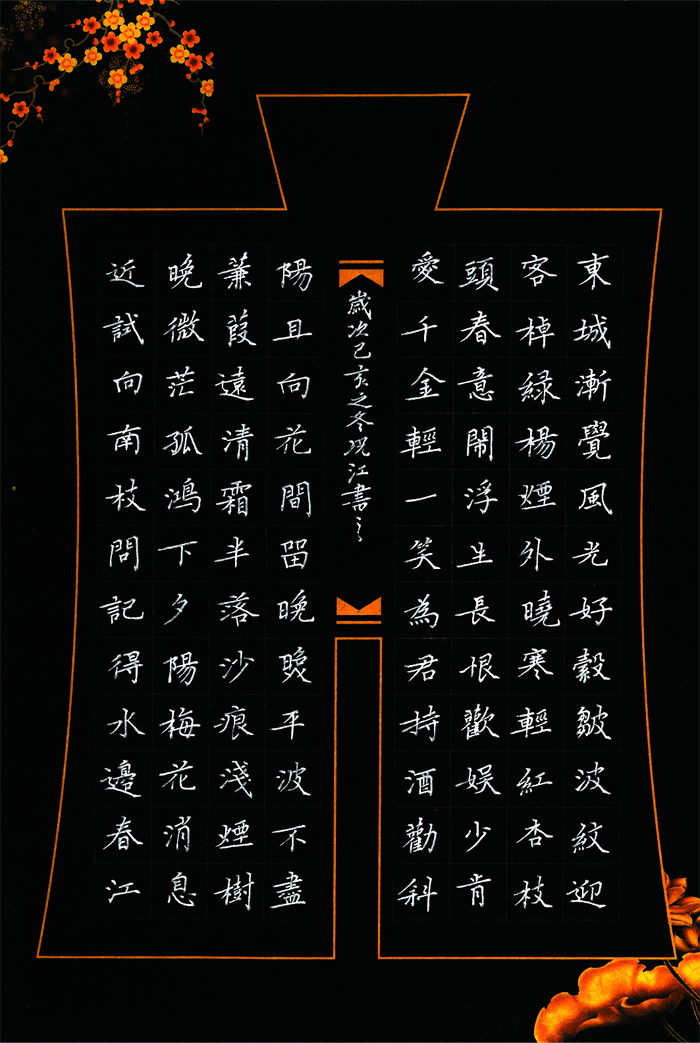 東城漸覺風光好縠皺波紋迎
客棹綠楊煙外曉寒輕紅杏枝
頭春意鬧浮生長恨歡娛少肯
愛千金輕一笑為君持酒勸斜
陽且向花間留晚照平波不盡
蒹葭遠清霜半落沙痕淺煙樹
晚微茫孤鴻下夕陽梅花消息
近試向南枝問記得水邊春江
歲次己亥之冬江書之